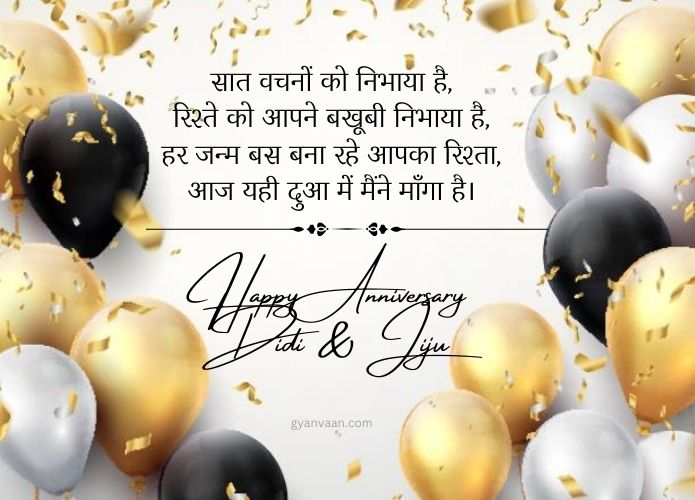 सात वचनों को निभाया है,
रिश्ते को आपने बखूबी निभाया है,
हर जन्म बस बना रहे आपका रिश्ता,
आज यही दुआ में मैंने माँगा है।
Happy Anniversary
Didi & Jiju
gyanvaan.com